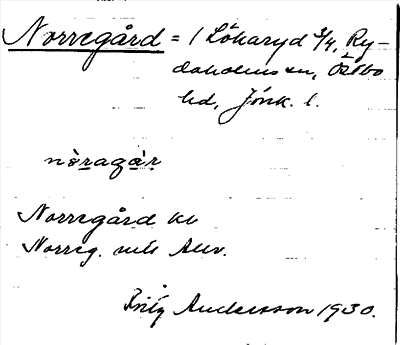 Norregård = 1 Lökaryd 3/4, Ry-
daholms sn, Östbo
hd, Jönk. l.
nòragár
Norregård kb
Norreg. mtl Alev.
Fritz Andersson 1930.